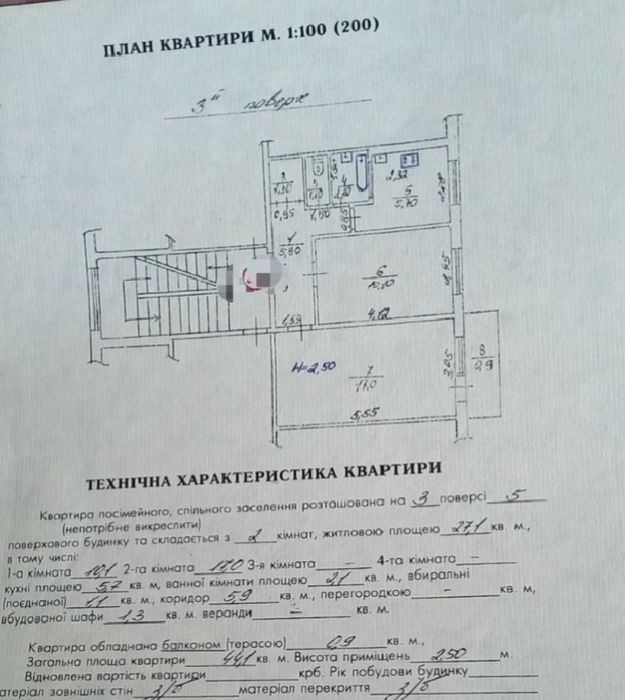 ПЛАН КВАРТИРИ М. 1:100 (200)
3й поверх
2
1,30
3
1,10
4
2,10
2,32
5
5,70
0,95
1,50
0,85
1
5,90
6
10,10
2,45
4,12
1,33
H=2,50
7
17,0
3,05
8
0,9
5,55
ТЕХНІЧНА ХАРАКТЕРИСТИКА КВАРТИРИ
Квартира посімейного, спільного заселення розташована на 3 поверсі 5
(непотрібне викреслити)
поверхового будинку та складається з 2 кімнат, житловою площею 27,1 кв. м.,
в тому числі:
1-а кімната 10,1 2-га кімната 17,0 3-я кімната - 4-та кімната -
кухні площею 5,7 кв. м, ванної кімнати площею 2,1 кв. м., вбиральні
(поєднаної) 1,1 кв. м., коридор 5,9 кв. м., перегородкою - кв. м,
вбудованої шафи 1,3 кв. м. веранди - кв. м.
Квартира обладнана балконом (терасою) 0,9 кв. м.,
Загальна площа квартири 44,1 кв. м. Висота приміщень 2,50 м.
Відновлена вартість квартири крб. Рік побудови будинку
матеріал зовнішніх стін з/б матеріал перекриття з/б